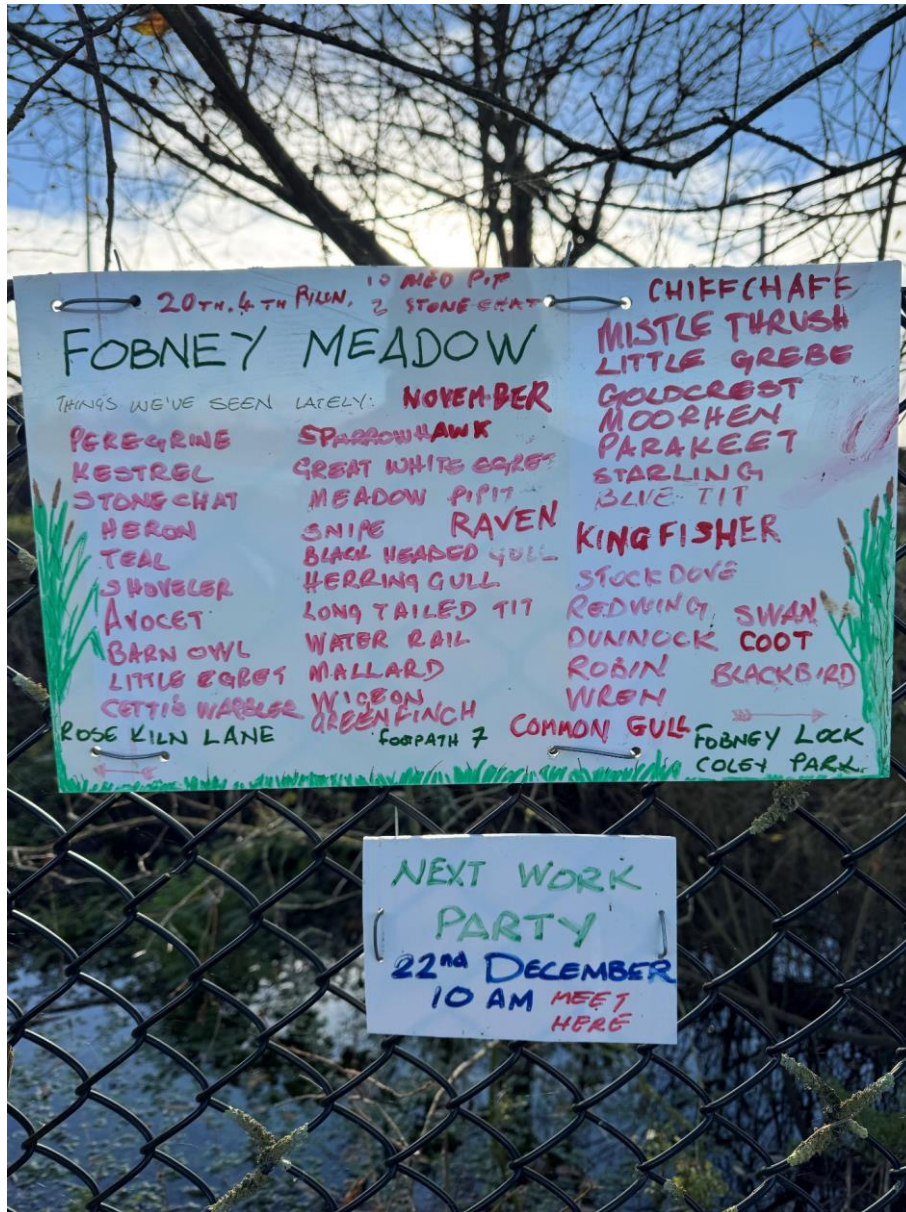 20TH. 4TH
10 MED PIP
2 STONECHAT
FOBNEY MEADOW
THINGS WE'VE SEEN LATELY: NOVEMBER
PEREGRINE
KESTREL
STONECHAT
HERON
TEAL
SHOVELER
AVOCET
BARN OWL
LITTLE EGRET
CETTI'S WARBLER
SPARROWHAWK
GREAT WHITE EGRET
MEADOW PIPIT
SNIPE RAVEN
BLACK HEADED GULL
HERRING GULL
LONG TAILED TIT
WATER RAIL
MALLARD
WIGEON
GREENFINCH
CHIFFCHAFF
MISTLE THRUSH
LITTLE GREBE
GOLDCREST
MOORHEN
PARAKEET
STARLING
BLUE TIT
KINGFISHER
STOCK DOVE
REDWING SWAN
DUNNOCK COOT
ROBIN BLACKBIRD
WREN
COMMON GULL
ROSE KILN LANE
FOOTPATH 7
FOBNEY LOCK
COLEY PARK
NEXT WORK
PARTY
22nd DECEMBER
10 AM MEET
HERE